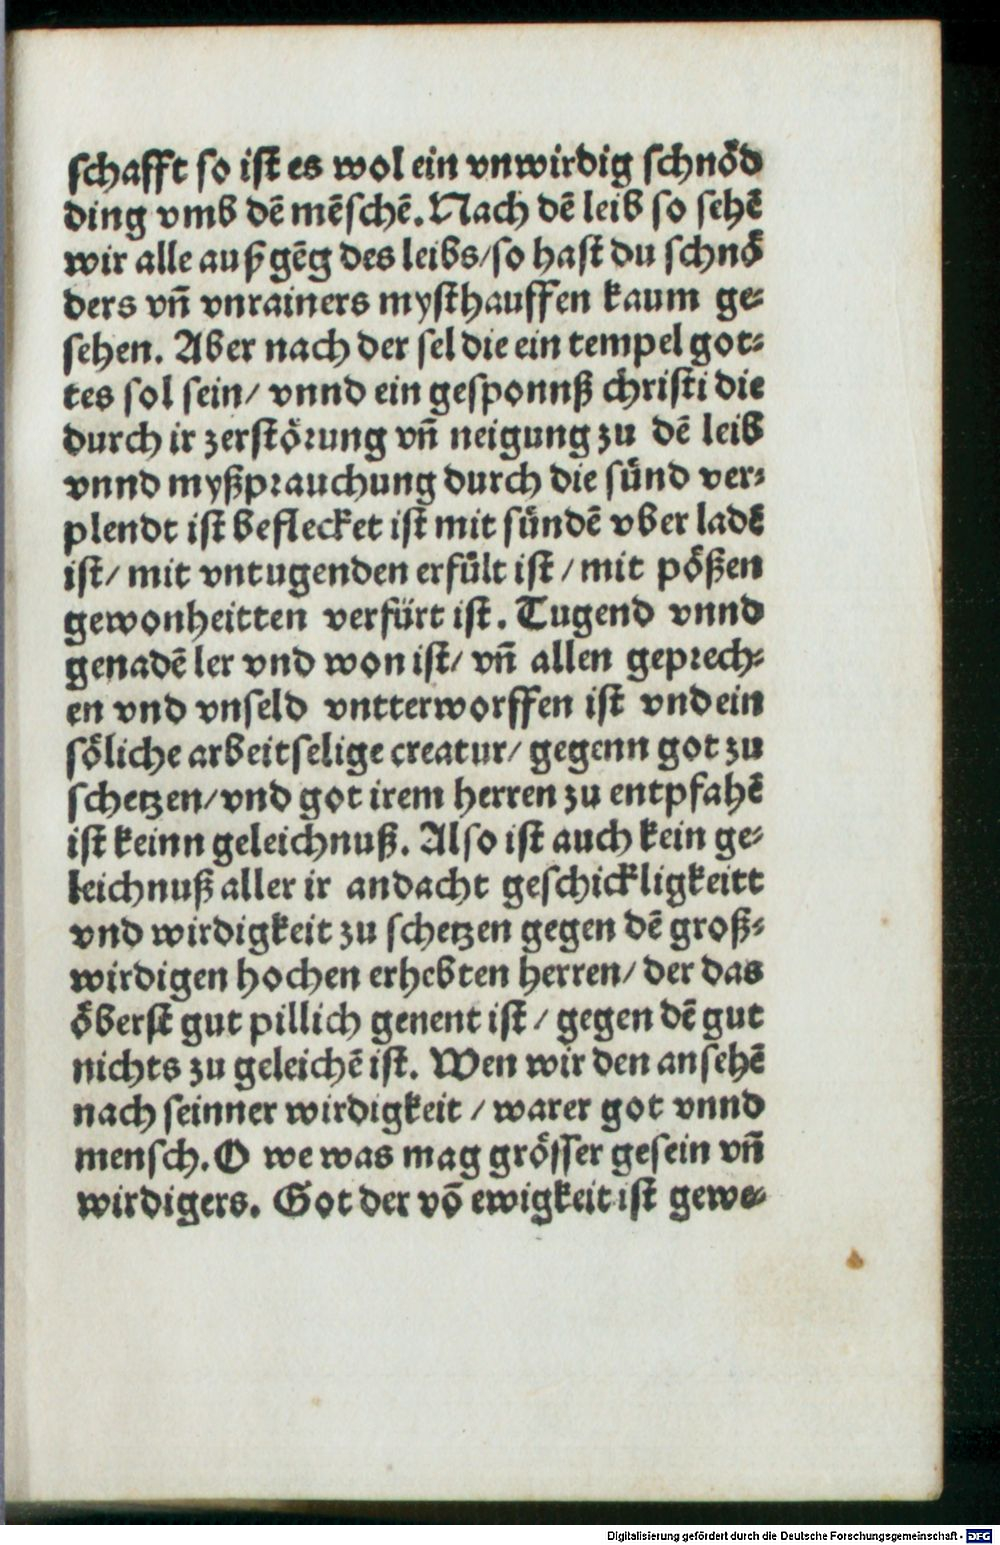 schafft so ist es wol ein vnwirdig schnöd
ding vmb dē mēschē. Nach dē leib so sehē
wir alle auß gēg des leibs/so hast du schnö
ders vn̄ vnrainers mysthauffen kaum ge⸗
sehen. Aber nach der sel die ein tempel got⸗
tes sol sein/ vnnd ein gesponnß christi die
durch ir zerstörung vn̄ neigung zu dē leib
vnnd myßprauchung durch die sünd ver⸗
plendt ist beflecket ist mit sündē vber ladē
ist/ mit vntugenden erfült ist / mit pößen
gewonheitten verfürt ist. Tugend vnnd
genadē ler vnd won ist/ vn̄ allen geprech⸗
en vnd vnseld vntterworffen ist vnd ein
söliche arbeitselige creatur/ gegenn got zu
schetzen/vnd got irem herren zu entpfahē
ist keinn geleichnuß. Also ist auch kein ge⸗
leichnuß aller ir andacht geschickligkeitt
vnd wirdigkeit zu schetzen gegen dē groß⸗
wirdigen hochen erhebten herren/ der das
öberst gut pillich genent ist / gegen dē gut
nichts zu geleichē ist. Wen wir den ansehē
nach seinner wirdigkeit / warer got vnnd
mensch. O we was mag grösser gesein vn̄
wirdigers. Got der vō ewigkeit ist gewe⸗
Digitalisierung gefördert durch die Deutsche Forschungsgemeinschaft - DFG